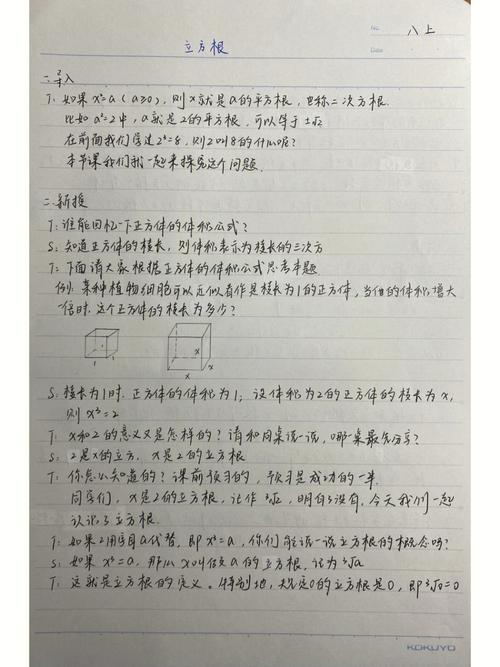 No. 八上
立方根
Date
一、导入
T: 如果x²=a(a≥0), 则x就是a的平方根, 也称二次方根.
比如a²=2中, a就是2的平方根, 可以等于±√2
在前面我们学过2³=8, 则2叫8的什么呢?
本节课我们就一起来探究这个问题.
二、新授
T: 谁能回忆一下正方体的体积公式?
S: 知道正方体的棱长, 则体积表示为棱长的三次方
T: 下面请大家根据正方体的体积公式思考本题
例: 某种植物细胞可以近似看作是棱长为1的正方体, 当它的体积增大
一倍时, 这个正方体的棱长为多少?
1 1 x x
S: 棱长为1时, 正方体的体积为1; 设体积为2的正方体的棱长为x,
则x³=2
T: x和2的意义又是怎样的? 请和同桌说一说, 哪一桌最先分享?
S: 2是x的立方, x是2的立方根
T: 你怎么知道的? 课前预习的, 预习是成功的一半.
同学们, x是2的立方根, 记作³√2, 明白了没有, 今天我们一起
认识了立方根.
T: 如果2用字母a代替, 即x³=a, 你们能说一说立方根的概念吗?
S: 如果x³=a, 那么x叫做a的立方根, 记为³√a
T: 这就是立方根的定义。特别地, 规定0的立方根是0, 即³√0=0
KOKUYO